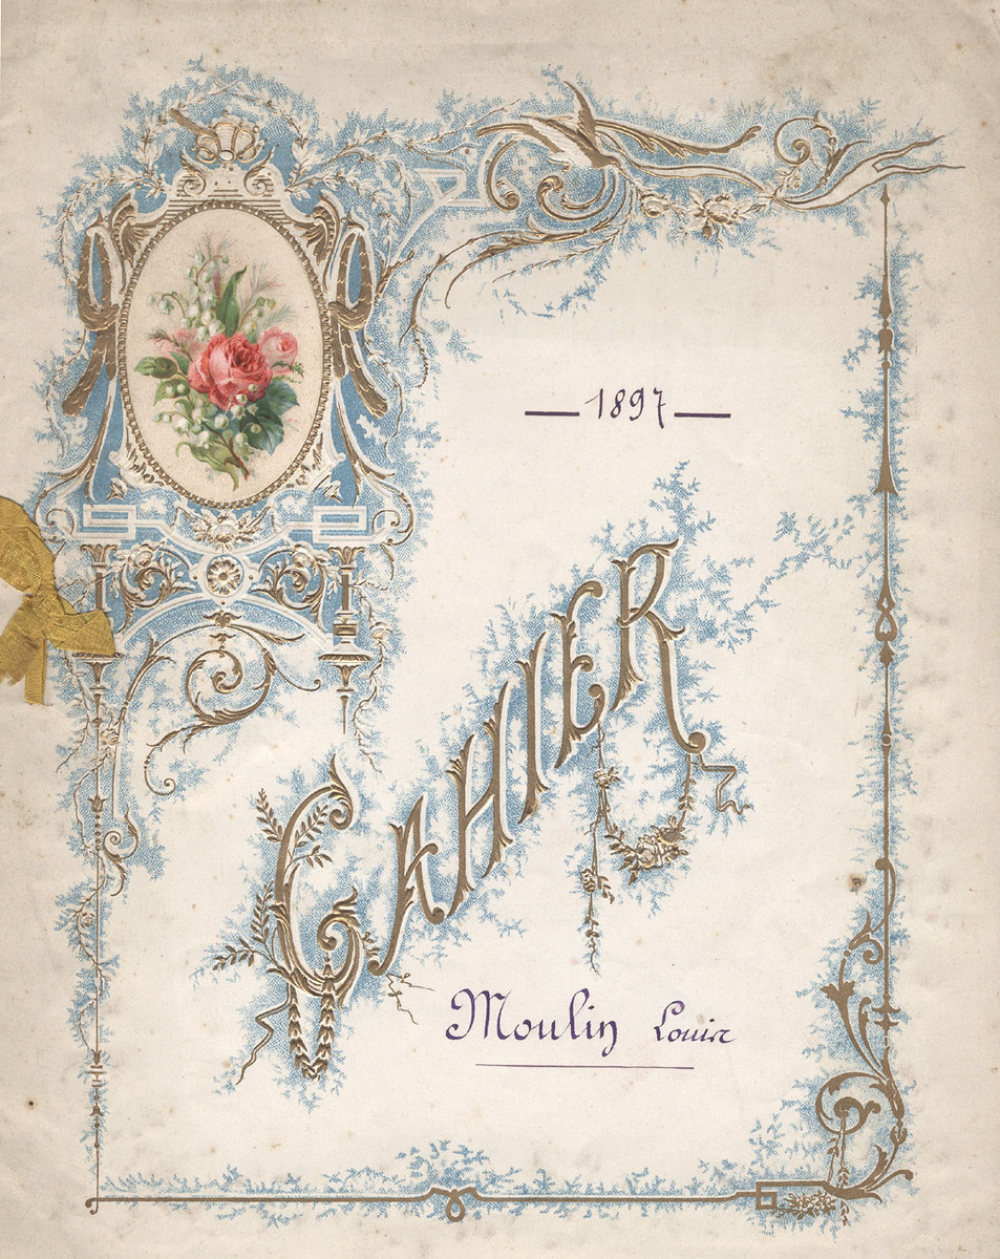 — 1897 —
CAHIER
Moulin Louis